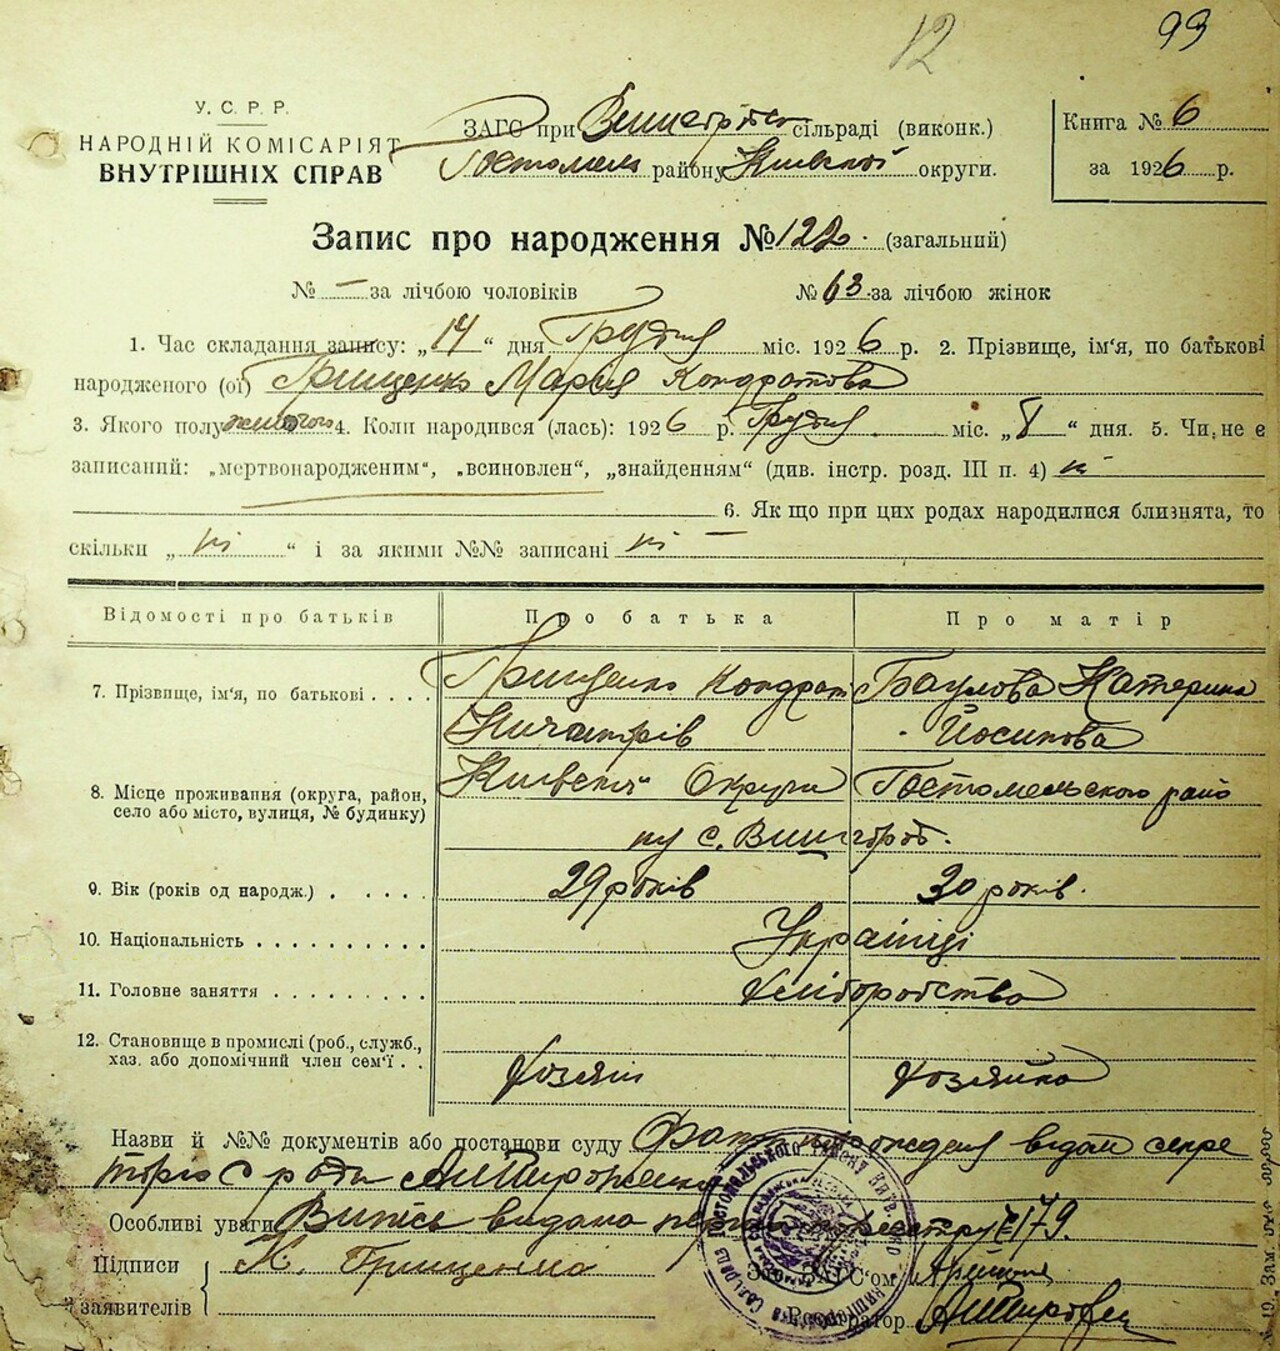 12 93
У. С. Р. Р.
НАРОДНІЙ КОМІСАРІЯТ
ВНУТРІШНІХ СПРАВ
ЗАГС при сільраді (виконк.)
району Київскої округи.
Книга № 6
за 1926 р.
Запис про народження № 122. (загальний)
№ — за лічбою чоловіків № 63 за лічбою жінок
1. Час складання запису: „14“ дня Грудня міс. 1926 р. 2. Прізвище, ім'я, по батькові
народженого (ої) Грищенко Мария Кондратова
3. Якого полу жіночого 4. Коли народився (лась): 1926 р. Грудня міс. „8“ дня. 5. Чи не є
записаний: „мертвонародженим“, „всиновлен“, „знайденням“ (див. інстр. розд. III п. 4) ні
6. Як що при цих родах народилися близнята, то
скільки „ні“ і за якими №№ записані ні —
Відомості про батьків Про батька Про матір
7. Прізвище, ім'я, по батькові . . . . Грищенко Кондрат Баулова Катерина
Йосипова
8. Місце проживання (округа, район, село або місто, вулиця, № будинку) Київскої Округи Гостомельского райо
ну с. Вишгород.
9. Вік (років од народж.) . . . . . 29 років 30 років.
10. Національність . . . . . . . . . . Українці
11. Головне заняття . . . . . . . . . Хліборобства
12. Становище в промислі (роб., служб., хаз. або допомічний член сем'ї . . Хозяін Хозяйка
Назви й №№ документів або постанови суду видан секре
Особливі уваги Випись видана реестру № 179.
Підписи заявителів К. Грищенко
Зав. ЗАГС'ом
Реєстратор